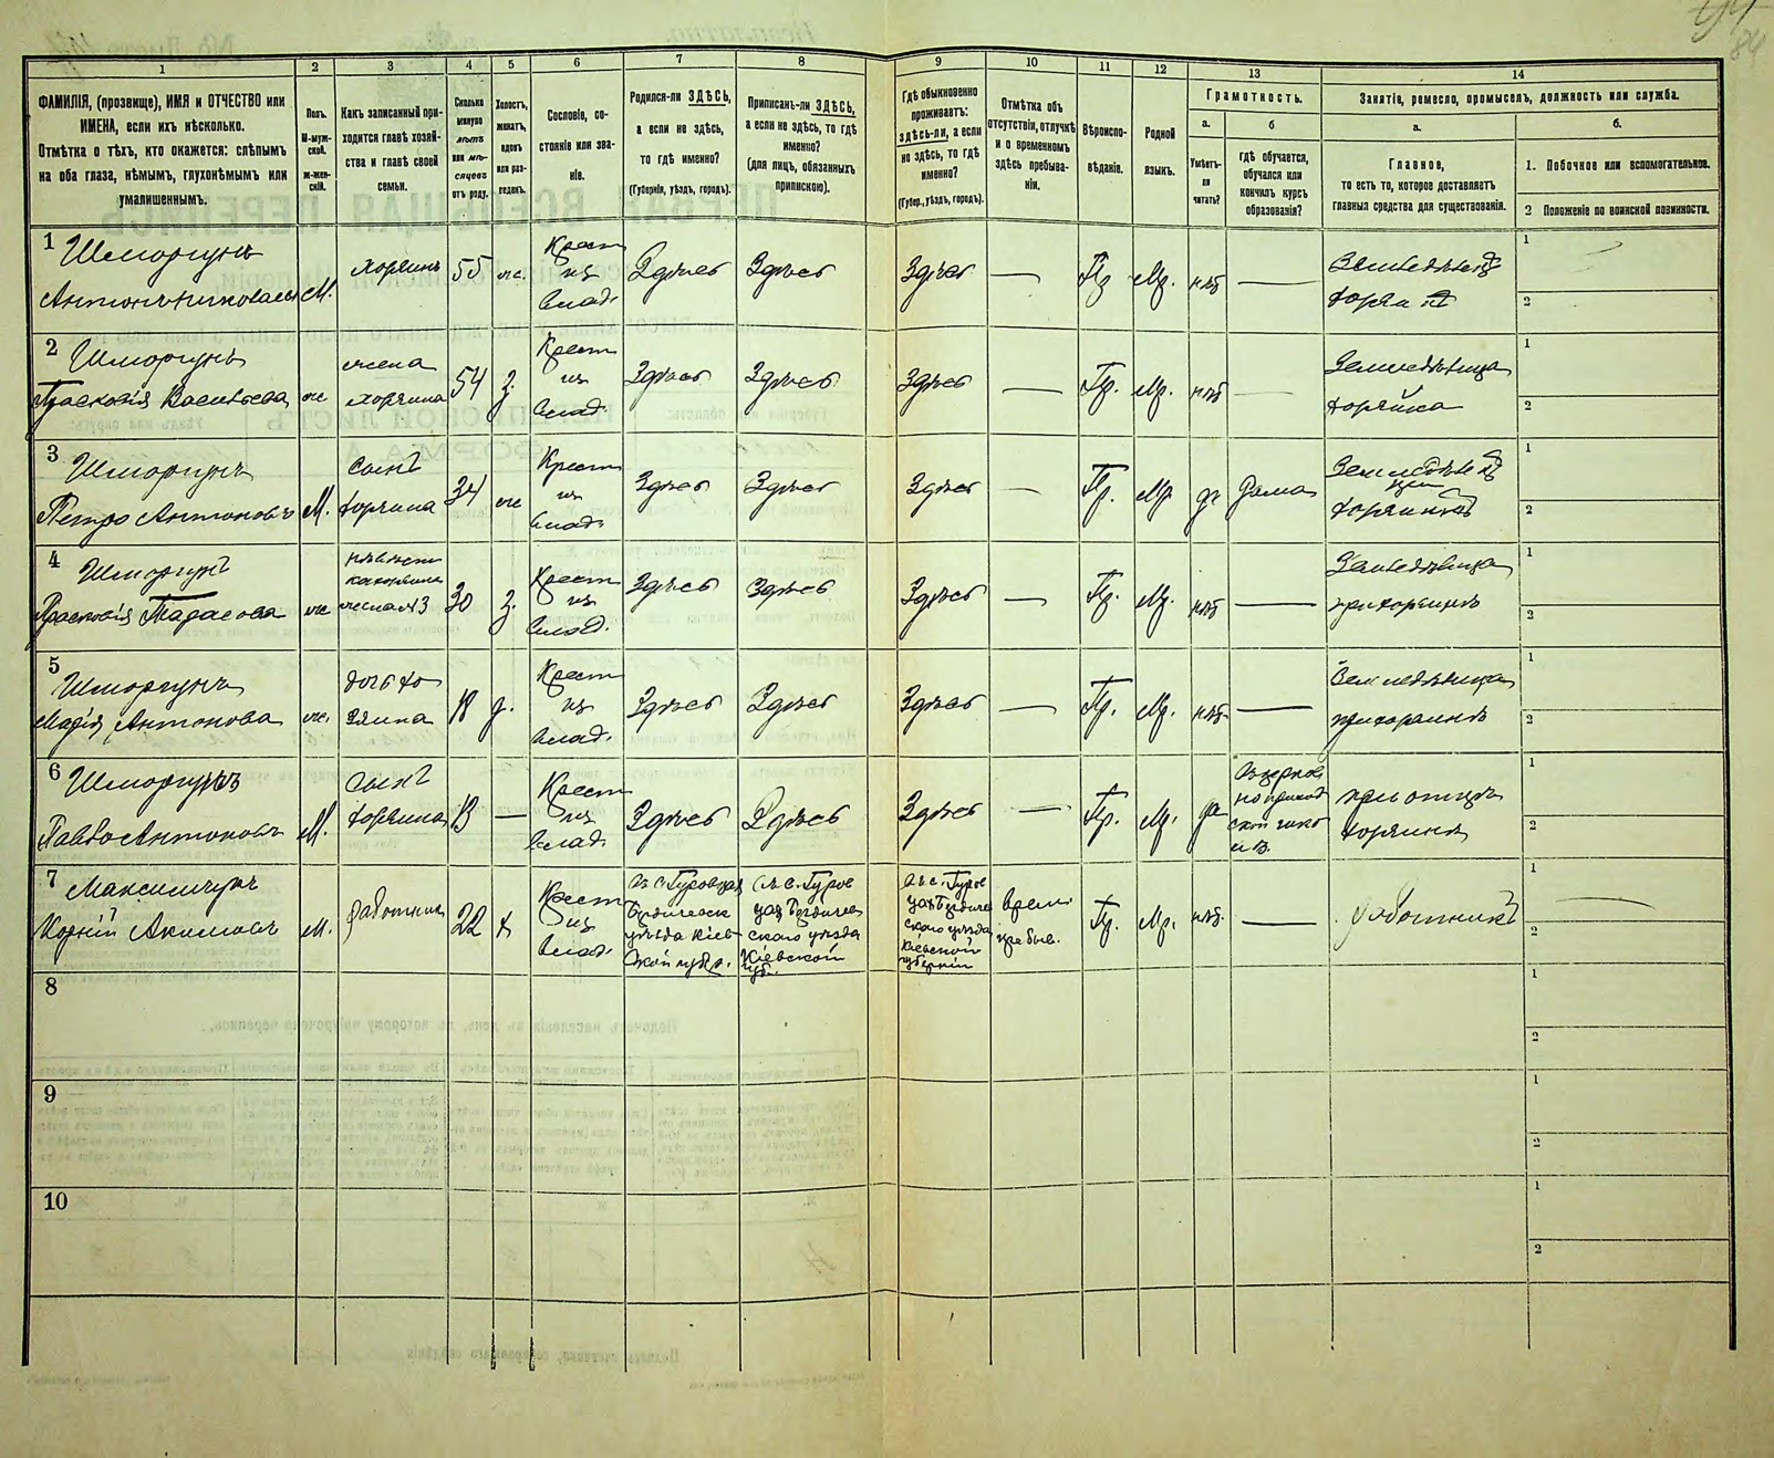 1
2
3
4
5
6
7
8
9
10
11
12
13
14
ФАМИЛІЯ, (прозвище), ИМЯ и ОТЧЕСТВО или
ИМЕНА, если ихъ нѣсколько.
Отмѣтка о тѣхъ, кто окажется: слѣпымъ
на оба глаза, нѣмымъ, глухонѣмымъ или
умалишеннымъ.
Полъ.
М-муж-
ской.
ж-жен-
скій.
Какъ записанный при-
ходится главѣ хозяй-
ства и главѣ своей
семьи.
Сколько
минуло
лѣтъ
или мѣ-
сяцевъ
отъ роду.
Холостъ,
женатъ,
вдовъ
или раз-
веденъ.
Сословіе, со-
стояніе или зва-
ніе.
Родился-ли ЗДѢСЬ,
а если не здѣсь,
то гдѣ именно?
(Губернія, уѣздъ, городъ).
Приписанъ-ли ЗДѢСЬ,
а если не здѣсь, то гдѣ
именно?
(для лицъ, обязанныхъ
припискою).
Гдѣ обыкновенно
проживаетъ:
здѣсь-ли, а если
не здѣсь, то гдѣ
именно?
(Губер., уѣздъ, городъ).
Отмѣтка объ
отсутствіи, отлучкѣ
и о временномъ
здѣсь пребыва-
ніи.
Вѣроиспо-
вѣданіе.
Родной
языкъ.
Грамотность.
а.
Умѣетъ-
ли
читать?
б
гдѣ обучается,
обучался или
кончилъ курсъ
образованія?
Занятіе, ремесло, промыселъ, должность или служба.
а.
Главное,
то есть то, которое доставляетъ
главныя средства для существованія.
б.
1. Побочное или вспомогательное.
2 Положеніе по воинской повинности.
1 Шморгунъ
Антонъ Николаевъ
М.
хозяинъ
55
ж.
Крест
из
влад.
Здѣсь
Здѣсь
Здѣсь
—
Пр
Мр.
нѣт
—
1
2
2 Шморгунъ
Прасковія Васильева
ж
жена
хозяина
54
з.
Крест
из
влад.
Здѣсь
Здѣсь
Здѣсь
—
Пр.
Мр.
нѣт
—
Земледѣлица
хозяйка
1
2
3 Шморгунъ
Петро Антоновъ
М.
сынъ
хозяина
34
ж
Крест
из
влад.
Здѣсь
Здѣсь
Здѣсь
—
Пр.
Мр
да
дома
1
2
4 Шморгунъ
Прасковія Тарасова
ж
жена №3
30
з.
Крест
из
влад.
Здѣсь
Здѣсь
Здѣсь
—
Пр.
Мр.
нѣт
—
Земледѣлица
при хозяинѣ
1
2
5
Шморгунъ
Марія Антонова
ж.
дочь хо
зяина
18
д.
Крест
из
влад.
Здѣсь
Здѣсь
Здѣсь
—
Пр.
Мр.
нѣт.
—
Земледѣлица
при хозяинѣ
1
2
6 Шморгунъ
Павло Антоновъ
М.
сынъ
хозяина
13
—
Крест
из
влад
Здѣсь
Здѣсь
Здѣсь
—
Пр.
Мр.
да
при отцѣ
хозяинѣ
1
2
7 Максимчукъ
Корній Акимовъ
М.
работник
22
х
Крест
из
влад.
Бердичевск
уѣзда Кіев
ской губер.
скаго уѣзда
Кіевской
губ.
скаго уѣзда
Кіевской
губерніи
врем.
пребыв.
Пр.
Мр.
нѣт.
—
работникъ
1
2
8
1
2
9
1
2
10
1
2